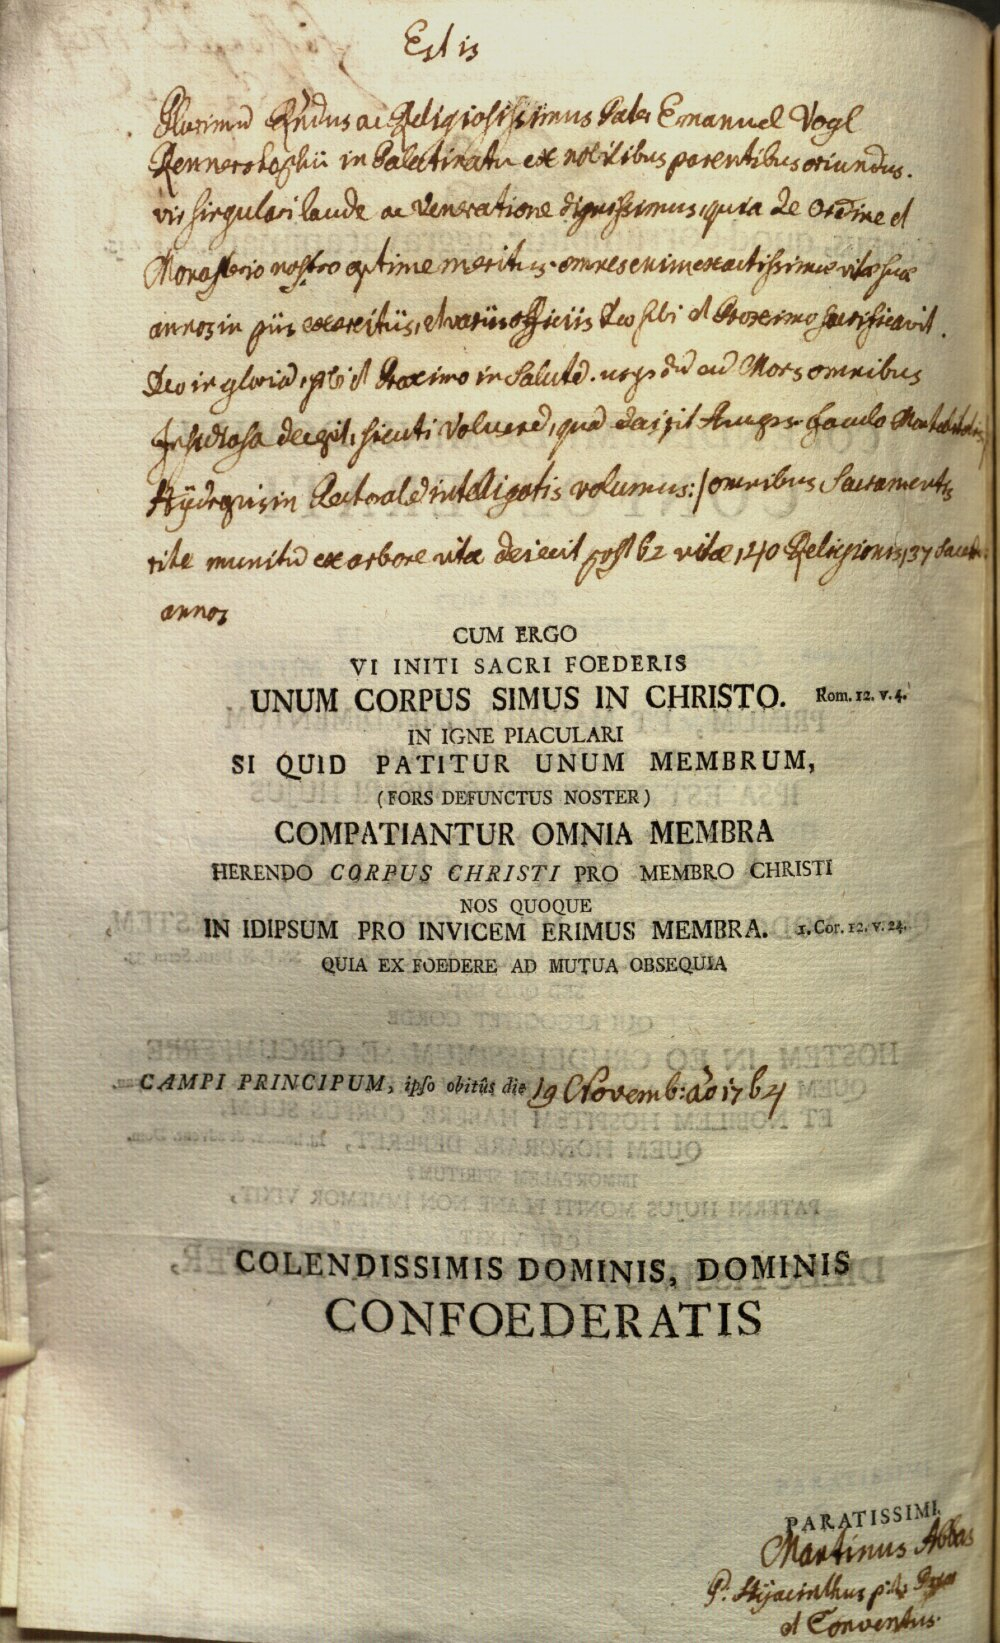 Est is
Plurimū Rṅdus ac Religiosissimus Pater Emanuel Vogl
in Palatinatu ex nobilibus parentibus oriundus.
vir singulari laude ac Veneratione dignissimus, quia de Ordine et
Monasterio nostro optime meritus. omnes enim exactissimæ vitæ suæ
annos in piis exercitiis, et variis officiis Deo sibi et Proximo sacrificavit.
Deo in gloriā, sibi et Proximo in Salutē. Mors omnibus
Insidiosa decepit, sicuti Voluere,
Hÿdropisin Pectoralē inteligatis volumus:/ omnibus Sacramentis
rite munitū ex arbore vitæ dejecit post 62 vitæ, 40 Religionis, 37 Sacerd:
annos
CUM ERGO
VI INITI SACRI FOEDERIS
UNUM CORPUS SIMUS IN CHRISTO. Rom. 12. v. 4.
IN IGNE PIACULARI
SI QUID PATITUR UNUM MEMBRUM,
(FORS DEFUNCTUS NOSTER)
COMPATIANTUR OMNIA MEMBRA
HERENDO CORPUS CHRISTI PRO MEMBRO CHRISTI
NOS QUOQUE
IN IDIPSUM PRO INVICEM ERIMUS MEMBRA. 1. Cor. 12. v. 24.
QUIA EX FOEDERE AD MUTUA OBSEQUIA
CAMPI PRINCIPUM, ipso obitûs die 19 Novemb: aō 1764
COLENDISSIMIS DOMINIS, DOMINIS
CONFOEDERATIS
PARATISSIMI.
Martinus Abbas
P. Hÿacinthus p:t:
et Conventus.